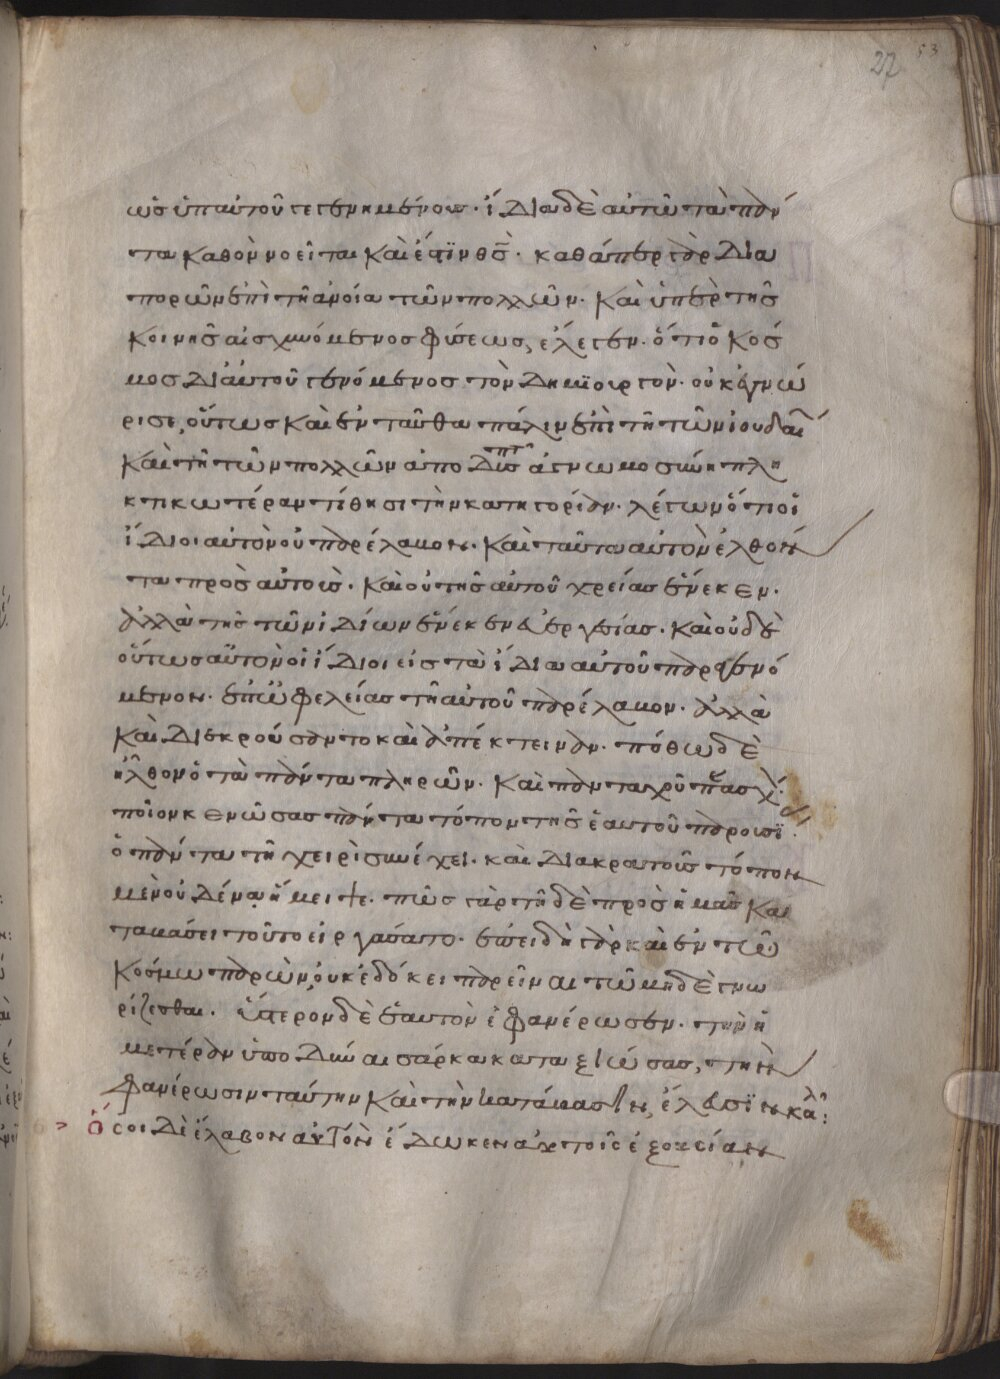 27 53
ὡς ὑπ αὐτοῦ γεγενημένους· ἴδια δὲ αὐτῶ τὰ πάν
τα καθὸ νοεῖται καὶ ἔστιν θς· καθάπερ γὰρ δια
πορῶν ἐπὶ τῆ ἀνοία τῶν πολλῶν· καὶ ὑπὲρ τῆς
κοινῆς αἰσχυνόμενος φύσεως, ἔλεγεν· ὅτι ὁ κόσ
μος δι αὐτοῦ γενόμενος τὸν δημιουργὸν οὐκ ἐγνώ
ρισε, οὕτως καὶ ἐνταῦθα πάλιν ἐπὶ τῆ τῶν ἰουδαί
καὶ τῆ τῶν πολλῶν ἀποδυσπετῶν ἀγνωμοσύνη πλη
κτικωτέραν τίθησι τὴν κατηγορίαν· λέγων ὅτι οἱ
ἴδιοι αὐτὸν οὐ παρέλαβον· καὶ ταῦτα αὐτὸν ἐλθόν
τα πρὸς αὐτούς· καὶ οὐ τῆς αὐτοῦ χρείας ἕνεκεν·
ἀλλὰ τῆς τῶν ἰδίων ἕνεκεν εὐεργεσίας· καὶ οὐδὲ
οὕτως αὐτὸν οἱ ἴδιοι εἰς τὰ ἴδια αὐτοῦ παραγενό
μενον· ἐπ ὠφελείας τῆ αὐτοῦ παρέλαβον· ἀλλὰ
καὶ διεκρούσαντο καὶ ἀπέκτειναν· πόθεν δὲ
ἦλθον ὁ τὰ πάντα πληρῶν· καὶ πανταχοῦ παρών·
ποῖον κενώσας πάντα τόπον τῆς ἑαυτοῦ παρουσί
ὁ πάντα τῆ χειρὶ συνέχει· καὶ διακρατοῦς τόπον
μὲν οὐδένα ἤμειψε· πῶς γὰρ τῆ δὲ πρὸς ἡμᾶς κα
ταβάσει τοῦτο εἰργάσατο· ἐπειδὴ γὰρ καὶ ἐν τῶ
κόσμω παρὼν, οὐκ ἐδόκει παρεῖναι τῶ μηδὲ γνω
ρίζεσθαι· ὕστερον δὲ ἑαυτὸν ἐφανέρωσεν· τὴν ἡ
μετέραν ὑποδῦναι σάρκα καταξιώσας, τὴν
φανέρωσιν ταύτην καὶ τὴν κατάβασιν, ἔλευσιν καλ:
ὅσοι δὲ ἔλαβον αὐτὸν ἔδωκεν αὐτοῖς ἐξουσίαν